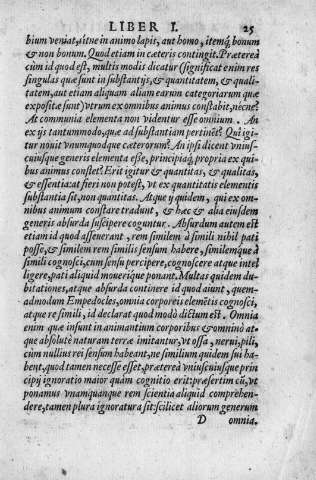 LIBER I. 25
bium veniat, sitne in animo lapis, aut homo, itemq́; bonum
& non bonum. Quod etiam in cæteris contingit. Præterea
cùm id quod est, multis modis dicatur (significat enim res
singulas quæ sunt in substantijs, & quantitatem, & quali-
tatem, aut etiam aliquam aliam earum categoriarum quæ
expositæ sunt) vtrum ex omnibus animus constabit, nécne?
At communia elementa non videntur esse omnium. An
ex ijs tantummodo, quæ ad substantiam pertinẽt? Qui igi-
tur nouit vnumquodque cæterorum? An ipsi dicent vnius-
cuiusque generis elementa esse, principiaq́; propria ex qui-
bus animus constet? Erit igitur & quantitas, & qualitas,
& essentia: at fieri non potest, vt ex quantitatis elementis
substantia sit, non quantitas. Atque ij quidem, qui ex om-
nibus animum constare tradunt, & hæc & alia eiusdem
generis absurda suscipere coguntur. Absurdum autem est
etiam id quod asseuerant, rem similem à simili nihil pati
posse, & similem rem similis sensum habere, similemque à
simili cognosci, cum sensu percipere, cognoscere atque intel
ligere, pati aliquid mouerique ponant. Multas quidem du-
bitationes, atque absurda continere id quod aiunt, quen-
admodum Empedocles, omnia corporeis elemẽtis cognosci,
atque re simili, id declarat quod modò dictum est. Omnia
enim quæ insunt in animantium corporibus & omninò at-
que absolutè naturam terræ imitantur, vt ossa, nerui, pili,
cùm nullius rei sensum habeant, ne similium quidem sui ha-
bent, quod tamen necesse esset, præterea vniuscuiusque prin
cipij ignoratio maior quàm cognitio erit: præsertim cũ, vt
ponamus vnamquanque rem scientia aliquid comprehen-
dere, tamen plura ignoratura sit: scilicet aliorum generum
D omnia.